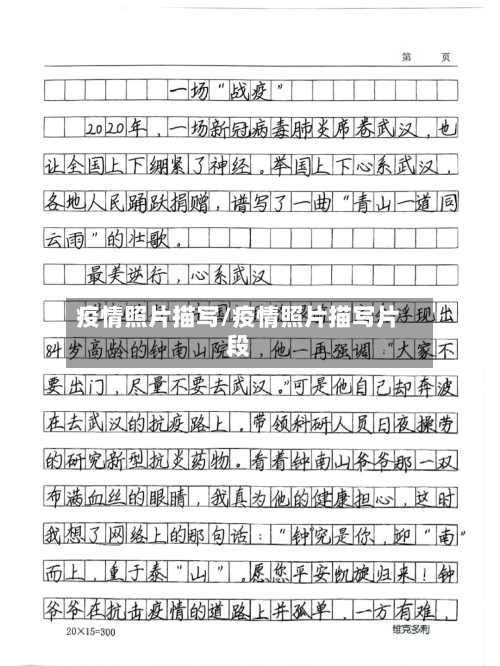 第 页
一场“战疫”
2020年，一场新冠病毒肺炎席卷武汉，也
让全国上下绷紧了神经。举国上下心系武汉，
各地人民踊跃捐赠，谱写了一曲“青山一道同
云雨”的壮歌。
最美逆行，心系武汉
疫情照片描写/疫情照片描写片
段
浮现出
84岁高龄的钟南山院 ，他一再强调：“大家不
要出门，尽量不要去武汉。”可是他自己却奔波
在去武汉的抗疫路上。带领科研人员日夜操劳
的研究新型抗炎药物。看着钟南山爷爷那一双
布满血丝的眼睛，我真为他的健康担心，这时
我想了网络上的那句话：“‘钟’究是你，迎“南”
而上，重于泰“山”。愿您平安凯旋归来！钟
爷爷在抗击疫情的道路上并孤单，一方有难，
20×15=300
维克多利